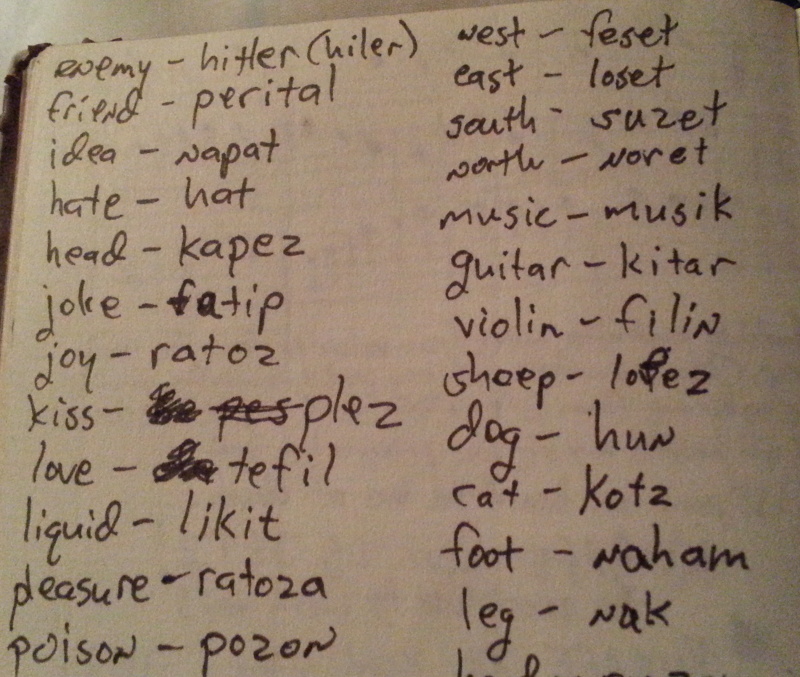 enemy - hitler (hiler)
friend - perital
idea - napat
hate - hat
head - kapez
joke - fatip
joy - ratoz
kiss - pes plez
love - tefil
liquid - likit
pleasure - ratoza
poison - pozon
west - feset
east - loset
south - suzet
north - noret
music - musik
guitar - kitar
violin - filin
sheep - lofez
dog - hun
cat - kotz
foot - naham
leg - nak